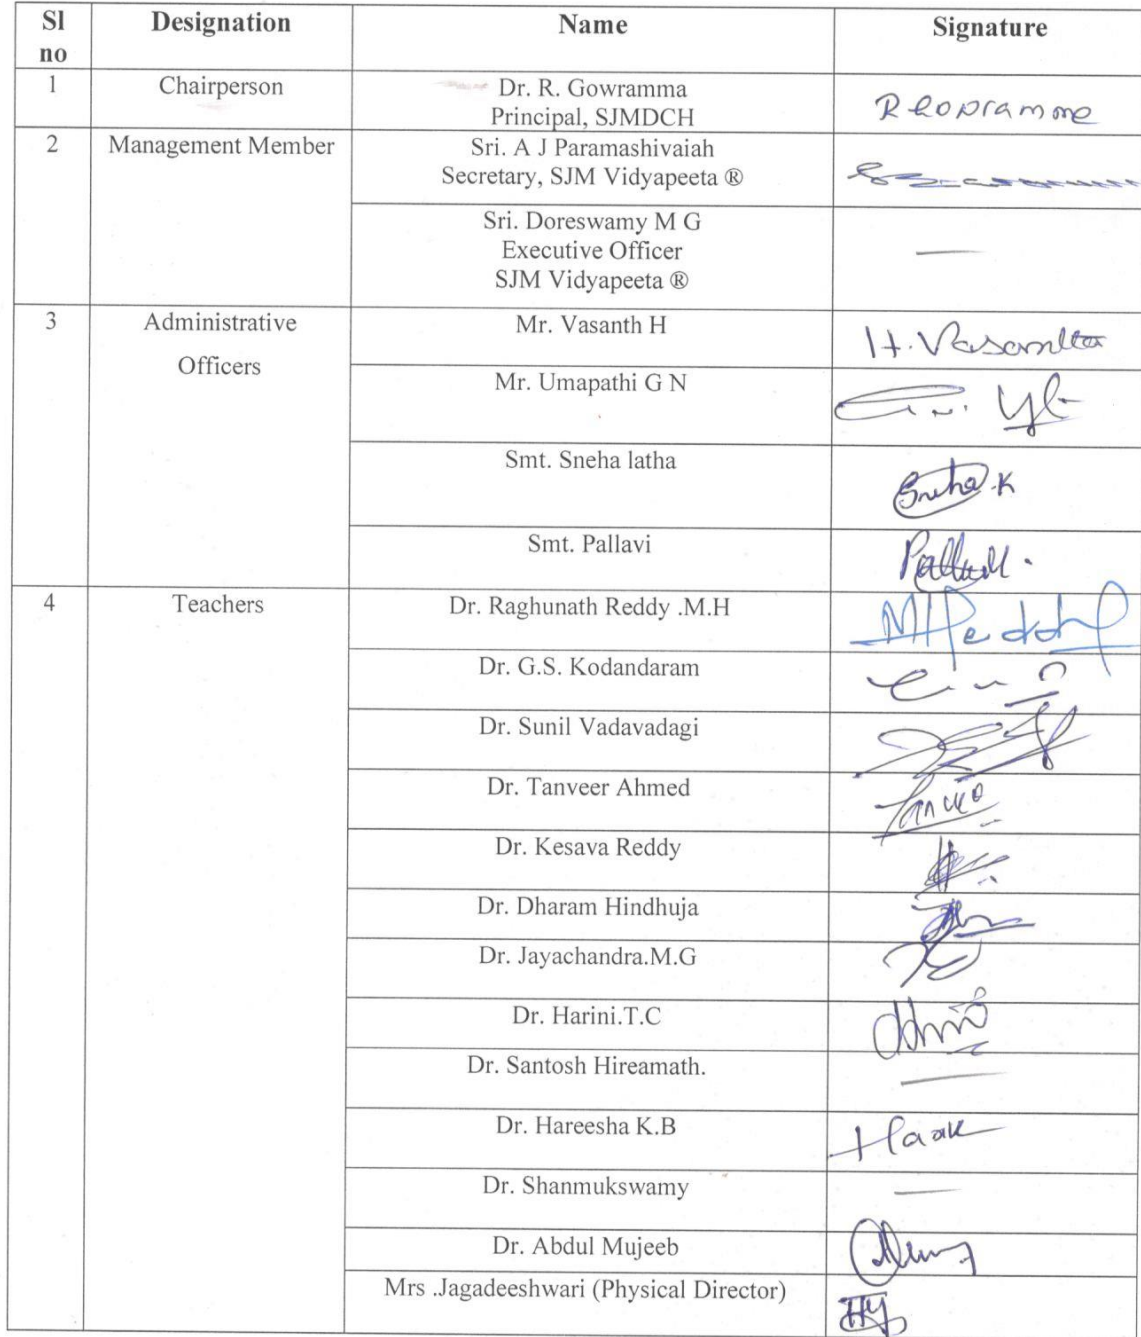 Sl no Designation Name Signature
1 Chairperson Dr. R. Gowramma
Principal, SJMDCH
2 Management Member Sri. A J Paramashivaiah
Secretary, SJM Vidyapeeta ®
Sri. Doreswamy M G
Executive Officer
SJM Vidyapeeta ®
—
3 Administrative Officers Mr. Vasanth H H. Vasantha
Mr. Umapathi G N
Smt. Sneha latha Sneha.K
Smt. Pallavi
4 Teachers Dr. Raghunath Reddy .M.H MHReddy
Dr. G.S. Kodandaram
Dr. Sunil Vadavadagi
Dr. Tanveer Ahmed
Dr. Kesava Reddy
Dr. Dharam Hindhuja
Dr. Jayachandra.M.G
Dr. Harini.T.C
Dr. Santosh Hireamath. —
Dr. Hareesha K.B
Dr. Shanmukswamy —
Dr. Abdul Mujeeb
Mrs .Jagadeeshwari (Physical Director)